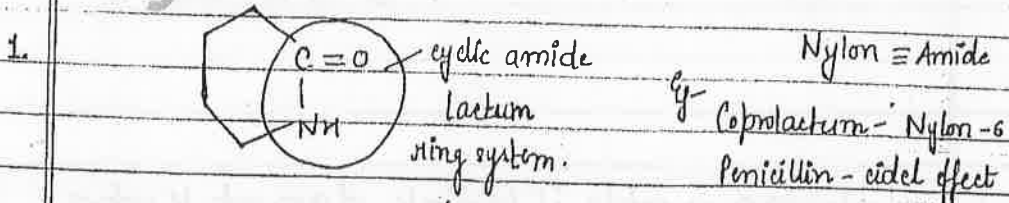 1.
C=O
NH
cyclic amide
Lactum
ring system.
Nylon ≡ Amide
eg-
Coprolactum - Nylon-6
Penicillin - cidel effect